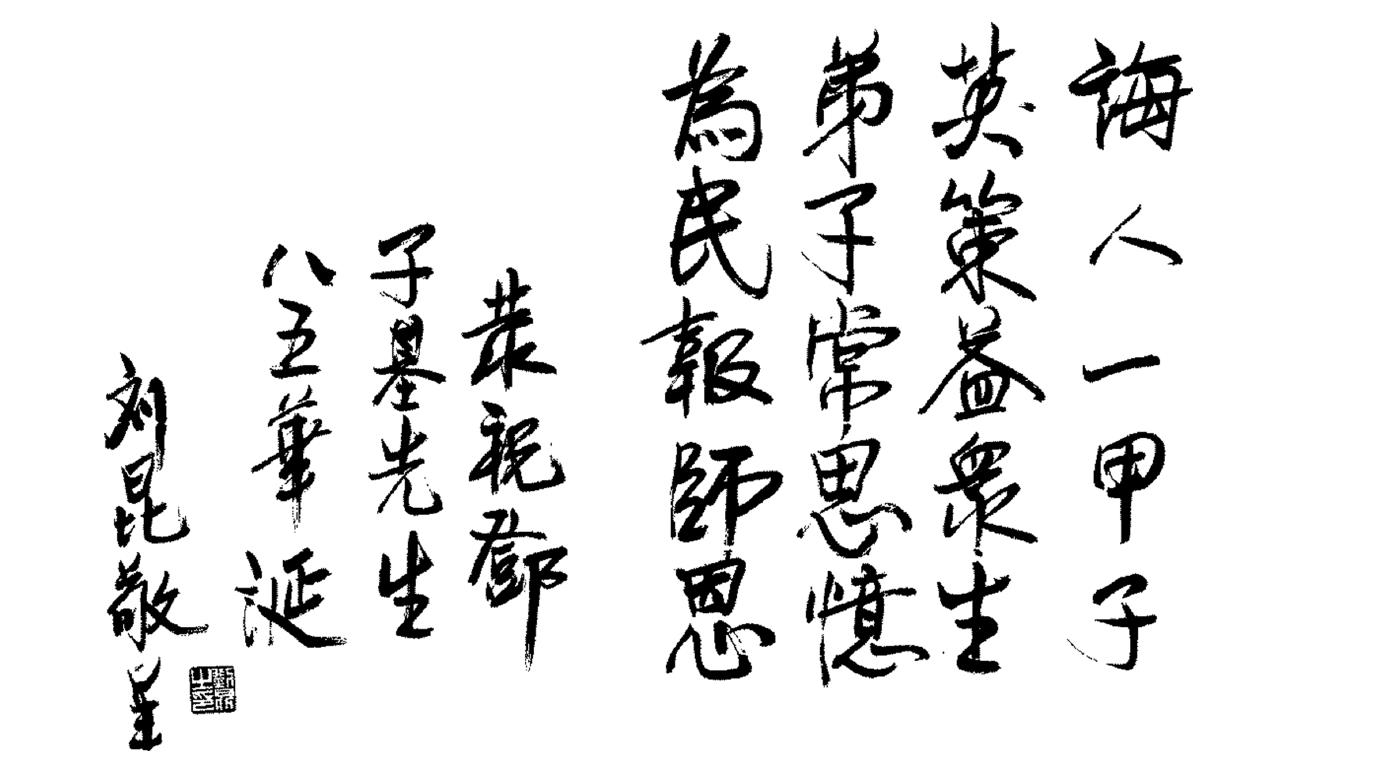 誨人一甲子
英策益眾生
弟子常思憶
為民報師恩
恭祝鄧
子基先生
八五華誕
劉昆敬呈